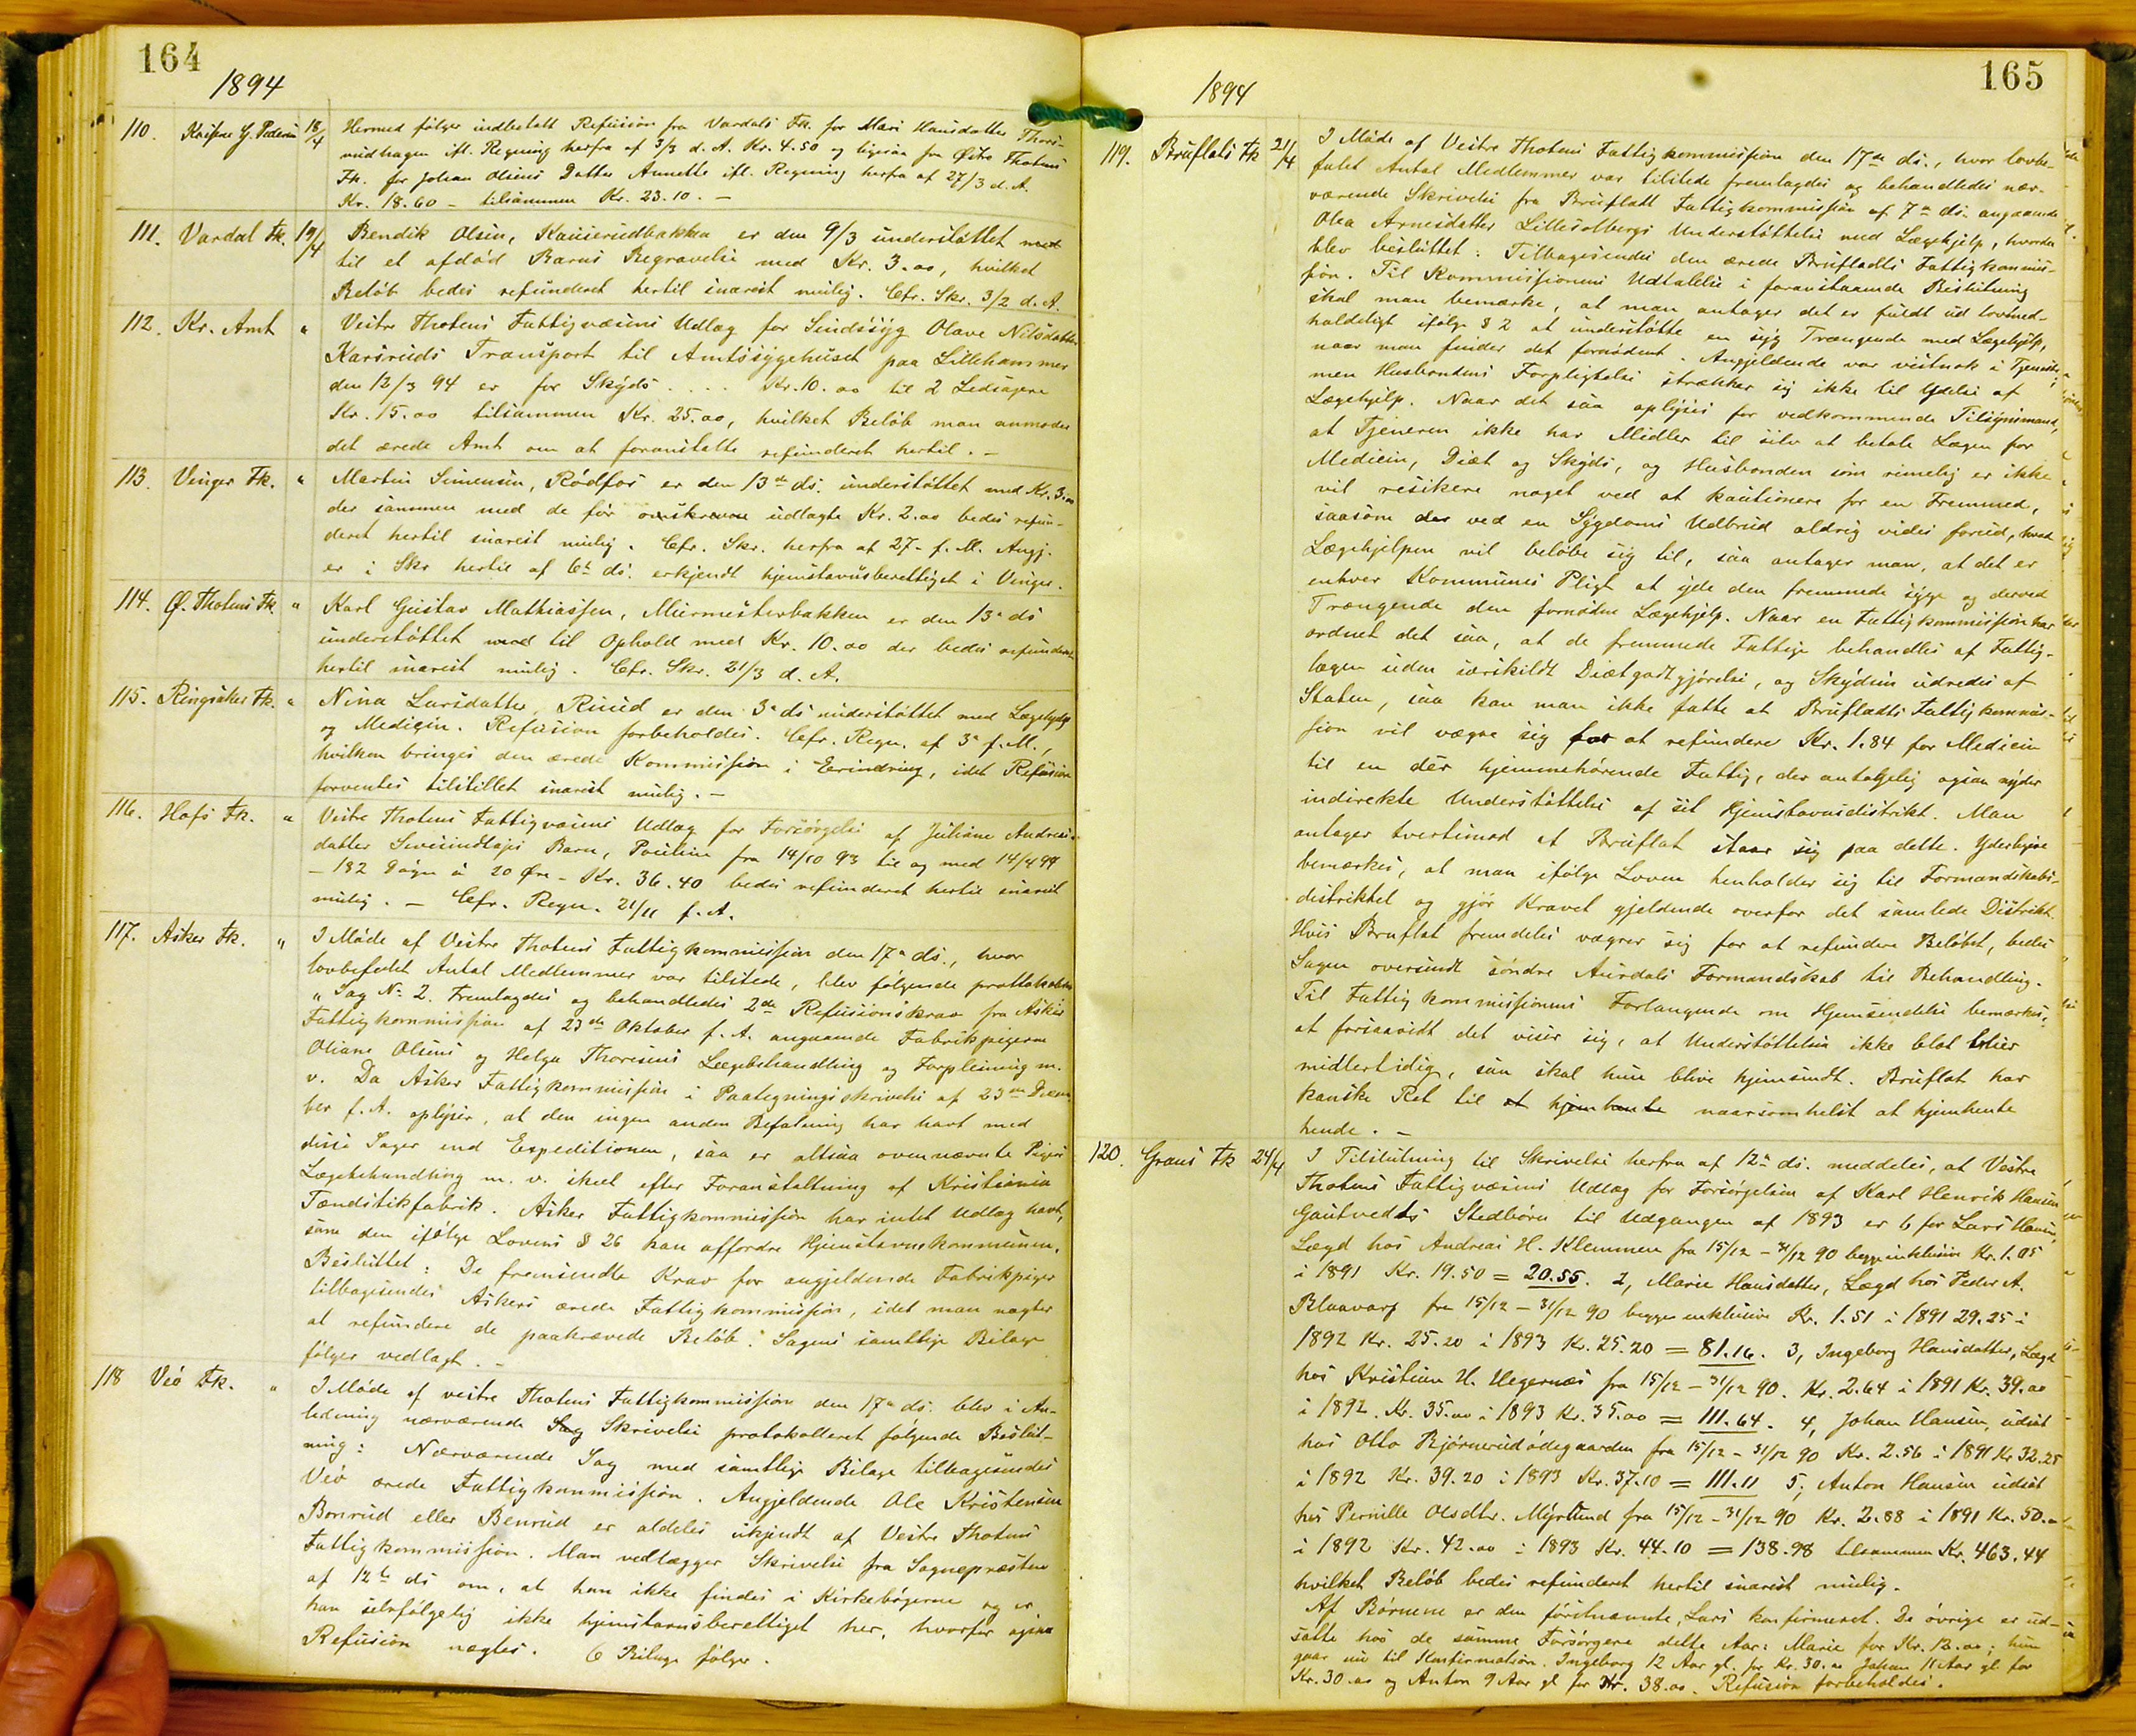 164
1894
110. Kristine G. Pedersen 18/4 Hermed følger indbetalt Refusion fra Vardals Fk. for Mari Hansdatter Thors-
rudhagen ifl. Regning herfra af 3/3 d. A. Kr. 4.50 og ligesaa fra Østre Thotens
Fk. for Johan Olsens Datter Annette ifl. Regning herfra af 27/3 d. A.
Kr. 18.60 – tilsammen Kr. 23.10. –
111. Vardal Fk. 19/4 Bendik Olsen, Kauserudbakken er den 9/3 understøttet med
til et afdød Barns Begravelse med Kr. 3.00, hvilket
Beløb bedes refunderet hertil snarest mulig. Cfr. Skr. 3/2 d. A.
112. Kr. Amt " Vestre Thotens Fattigvæsens Udlæg for Sindssyg Olave Nilsdatter
Karsruds Transport til Amtssygehuset paa Lillehammer
den 12/3 94 er for Skyds .... Kr. 10.00 til 2 Ledsagere
Kr. 15.00 tilsammen Kr. 25.00, hvilket Beløb man anmoder
det ærede Amt om at foranstalte refunderet hertil. –
113. Vinger Fk. " Martin Simensen, Rødfos er den 13de ds. understøttet med Kr. 3.00
der sammen med de før udlagte Kr. 2.00 bedes refun-
deret hertil snarest mulig. Cfr. Skr. herfra af 27– f. M. Angj.
er i Skr hertil af 6t ds. erkjendt hjemstavnsberettiget i Vinger.
114. Ø. Thotens Fk. " Karl Gustav Mathiassen, Murmesterbakken er den 13de ds
understøttet med til Ophold med Kr. 10.00 der bedes refunderet
hertil snarest mulig. Cfr. Skr. 21/3 d. A.
115. Ringsaker Fk. " Nina Larsdatter, Ruud er den 3de ds understøttet med Lægehjelp
og Medicin. Refusion forbeholdes. Cfr. Regn. af 3de f. M.,
hvilken bringes den ærede Kommission i Erindring, idet Refusion
forventes tilstillet snarest mulig. –
116. Hofs Fk. " Vestre Thotens Fattigvæsens Udlæg for Forsørgelse af Juliane Andreas-
datter Barn, Pauline fra 14/10 93 til og med 14/4 94
– 182 Døgn à 20 Øre – Kr. 36.40 bedes refunderet hertil snarest
mulig. – Cfr. Regn. 21/11 f. A.
117. Asker Fk. " I Møde af Vestre Thotens Fattigkommission den 17de ds., hvor
lovbefalet Antal Medlemmer var tilstede, blev følgende prottokolleret
" Sag No 2. Fremlagdes og behandledes 2de Refusionskrav fra Askers
Fattigkommission af 23de Oktober f. A. angaaende Fabrikpigerne
Oliane Olsens og Helga Thoresens Lægebehandling og Forpleining m.
v. Da Asker Fattigkommission i Paategningsskrivelse af 23de Decem-
ber f. A. oplyser, at den ingen anden Befatning har havt med
disse Sager end Expeditionen, saa er altsaa ovennævnte Pigers
Lægebehandling m. v. skeet efter Foranstaltning af Kristiania
Tændstikfabrik. Asker Fattigkommission har intet Udlæg havt,
som den ifølge Lovens § 26 kan affordre Hjemstavnskommunen.
Besluttet: De fremsendte Krav for angjeldende Fabrikpiger
tilbagesendes Askers ærede Fattigkommission, idet man nægter
at refundere de paakrævede Beløb. Sagens samtlige Bilage
følger vedlagt. –
118 Veö Fk. " I Møde af vestre Thotens Fattigkommission den 17de ds. blev i An-
ledning nærværende Sag Skrivelse protokolleret følgende Beslut-
ning: Nærværende Sag med samtlige Bilage tilbagesendes
Veö ærede Fattigkommission. Angjeldende Ole Kristensen
Bonrud eller Benrud er aldeles ukjendt af Vestre Thotens
Fattigkommission. Man vedlægger Skrivelse fra Sognepræsten
af 12te ds om, at han ikke findes i Kirkebøgerne og er
han selvfølgelig ikke hjemstavnsberettiget her, hvorfor ogsaa
Refusion nægtes. 6 Bilage følger.
165
1894
119. Bruflats Fk 21/4 I Møde af Vestre Thotens Fattigkommission den 17de ds., hvor lovbe-
falet Antal Medlemmer var tilstede fremlagdes og behandledes nær-
værende Skrivelse fra Bruflatt Fattigkommission af 7de ds. angaaende
Olea Arnesdatter Lillesolbergs Understøttelse med Lægehjelp, hvorda
blev besluttet: Tilbagesendes den ærede Brufladts Fattigkommis-
sion. Til Kommissionens Udtalelse i foranstaaende Beslutning
skal man bemærke, at man antager det er fuldt ud lovmed-
holdeligt ifølge § 2 at understøtte en syg Trængende med Lægehjelp,
naar man finder det fornødent. Angjeldende var vistnok i Tjeneste,
men Husbondens Forpligtelse strækker sig ikke til Ydelse af
Lægehjelp. Naar det saa oplyses for vedkommende Tilsynsmand,
at Tjeneren ikke har Midler til selv at betale Lægen for
Medicin, Diæt og Skyds, og Husbonden som rimelig er ikke
vil resikere noget ved at kautionere for en Fremmed,
saasom der ved en Sygdoms Udbrud aldrig vides forud, hvad
Lægehjelpen vil beløbe sig til, saa antager man, at det er
enhver Kommunes Pligt at yde den fremmede syge og derved
Trængende den fornødne Lægehjelp. Naar en Fattigkommission har
ordnet det saa, at de fremmede Fattige behandles af Fattig-
lægen uden særskildt Diætgodtgjørelse, og Skydsen udredes af
Staten, saa kan man ikke fatte at Brufladts Fattigkommis-
sion vil vægre sig for at refundere Kr. 1.84 for Medicin
til en der hjemmehørende Fattig, der antagelig ogsaa nyder
indirekte Understøttelse af sit Hjemstavnsdistrikt. Man
antager tvertimod at Bruflat staar sig paa dette. Yderligere
bemærkes, at man ifølge Loven henholder sig til Formandskabs-
distriktet og gjør Kravet gjeldende overfor det samlede Distrikt.
Hvis Bruflat fremdeles vægrer sig for at refundere Beløbet, bedes
Sagen oversendt søndre Aurdals Formandskab til Behandling.
Til Fattigkommissionens Forlangende om Hjemsendelse bemærkes,
at forsaavidt det viser sig, at Understøttelsen ikke blot bliver
midlertidig, saa skal hun blive hjemsendt. Bruflat har
kanske Ret til at hjemhente naarsomhelst at hjemhente
hende. –
120. Grans Fk 24/4 I Tilslutning til Skrivelse herfra af 12te ds. meddeles, at Vestre
Thotens Fattigvæsens Udlæg for Forsørgelsen af Karl Henrik Hansen
Gautvedts Stedbørn til Udgangen af 1893 er 1, for Lars Hansen,
Lægd hos Andreas H. Klemmen fra 15/12 – 31/12 90 begge inklusive Kr. 1.05
i 1891 Kr. 19.50 = 20.55. 2, Marie Hansdatter, Lægd hos Peder A.
Blaavarp fra 15/12 – 31/12 90 begge inklusive Kr. 1.51 i 1891 29.25 i
1892 Kr. 25.20 i 1893 Kr. 25.20 = 81.16. 3, Ingeborg Hansdatter, Lægd
hos Kristian H. Hegernæs fra 15/12 – 31/12 90. Kr. 2.64 i 1891 Kr. 39.00
i 1892. Kr. 35.00 i 1893 Kr. 35.00 = 111.64. 4, Johan Hansen, udsat
hos Otto Bjørnerudødegaarden fra 15/12 – 31/12 90 Kr. 2.56 i 1891 Kr 32.25
i 1892 Kr. 39.20 i 1893 Kr. 37.10 = 111.11 5, Anton Hansen udsat
hos Pernille Olsdtr. Myrlund fra 15/12 – 31/12 90 Kr. 2.88 i 1891 Kr. 50.00
i 1892 Kr. 42.00 i 1893 Kr. 44.10 = 138.98 tilsammen Kr. 463.44
hvilket Beløb bedes refunderet hertil snarest mulig.
Af Børnene er den førstnævnte, Lars konfirmeret. De øvrige er ud-
satte hos de samme Forsørgere dette Aar: Marie for Kr. 12.00; hun
gaar nu til Konfirmation. Ingeborg 12 Aar gl. for Kr. 30.00 Johan 11 Aar gl for
Kr. 30.00 og Anton 9 Aar gl for Kr. 38.00. Refusion forbeholdes.